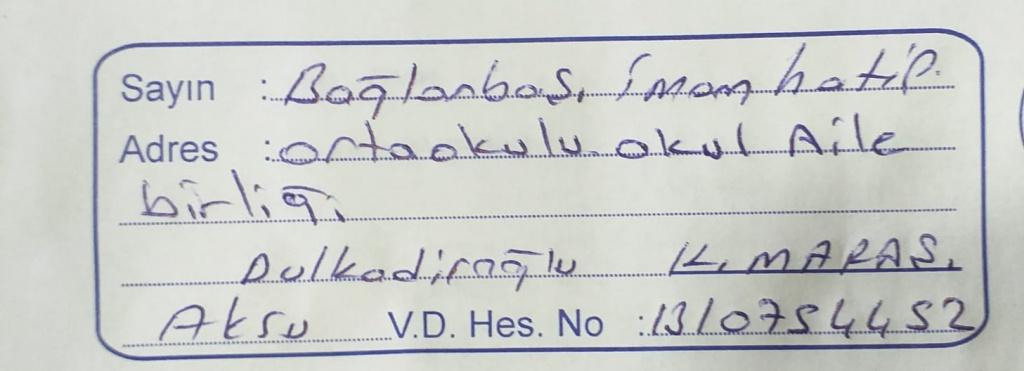 Sayın : Bağlarbaşı İmam hatip.
Adres : ortaokulu okul Aile
birliği
Dulkadiroğlu K. MARAŞ.
Aksu V.D. Hes. No : 1310754452